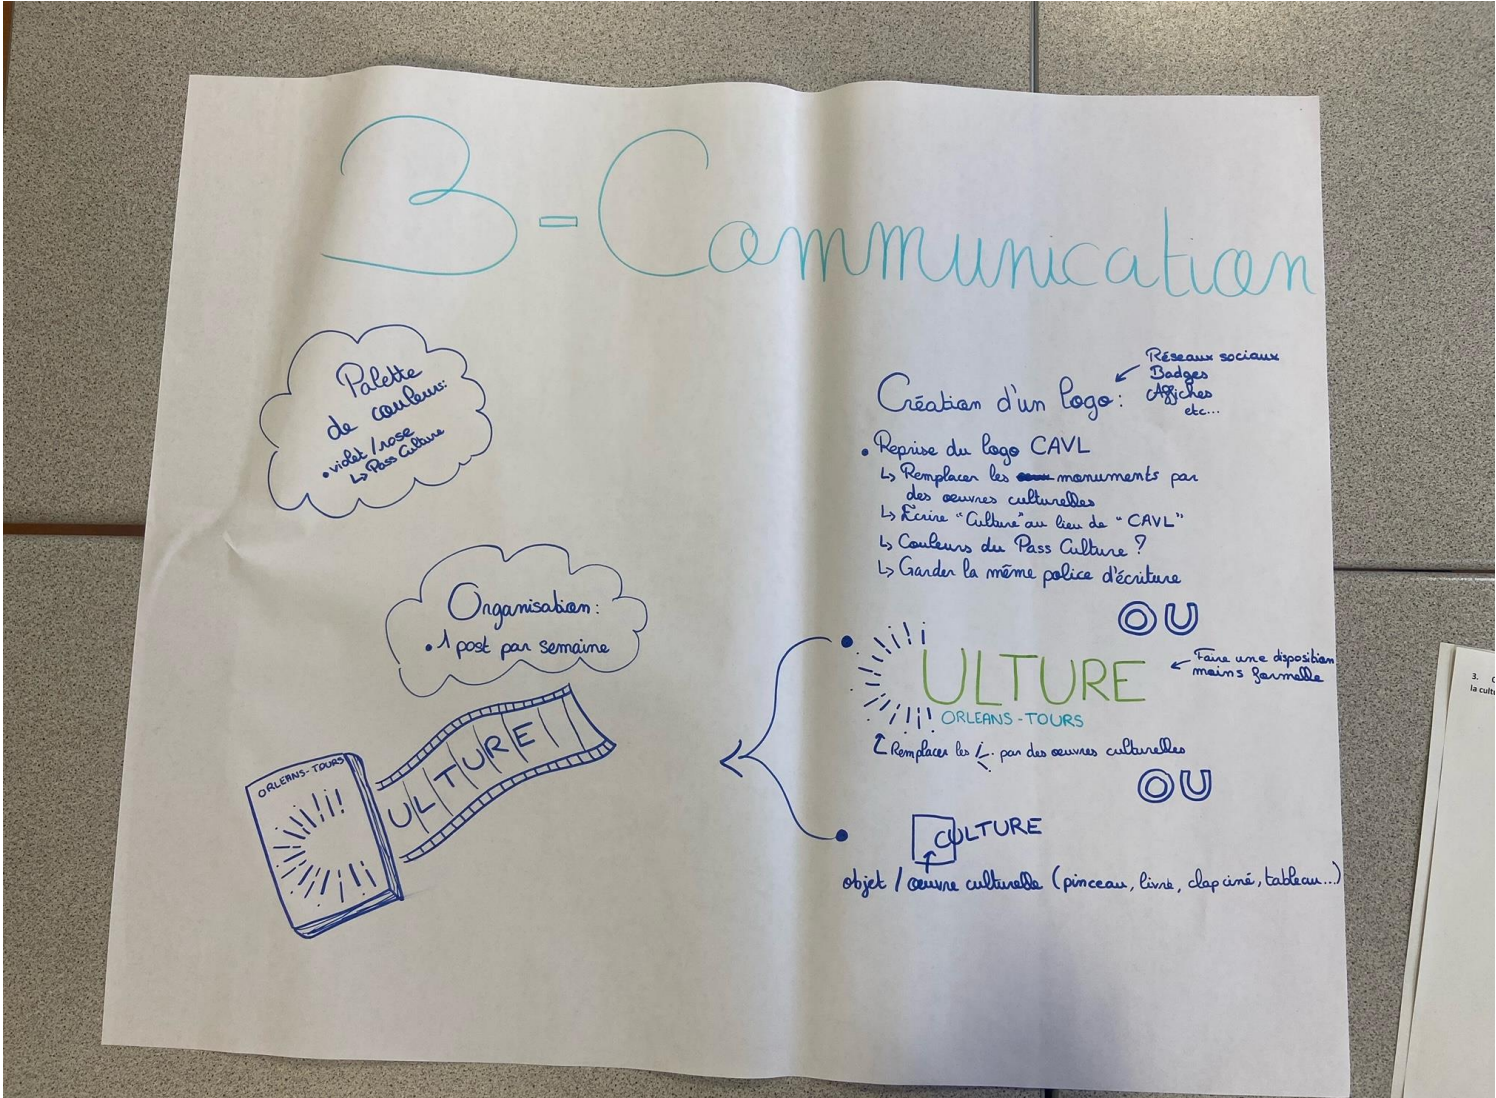 3 - Communication
Palette
de couleurs:
• violet / rose
↳ Pass Culture
Organisation:
• 1 post par semaine
ORLEANS-TOURS
ULTURE
Réseaux sociaux
Badges
Affiches
etc...
Création d'un logo :
• Reprise du logo CAVL
↳ Remplacer les monuments par
des œuvres culturelles
↳ Écrire "Culture" au lieu de "CAVL"
↳ Couleurs du Pass Culture ?
↳ Garder la même police d'écriture
OU
ULTURE
ORLEANS-TOURS
← Faire une disposition
moins formelle
Remplacer les par des œuvres culturelles
OU
CULTURE
objet / œuvre culturelle (pinceau, livre, clap ciné, tableau...)
3.